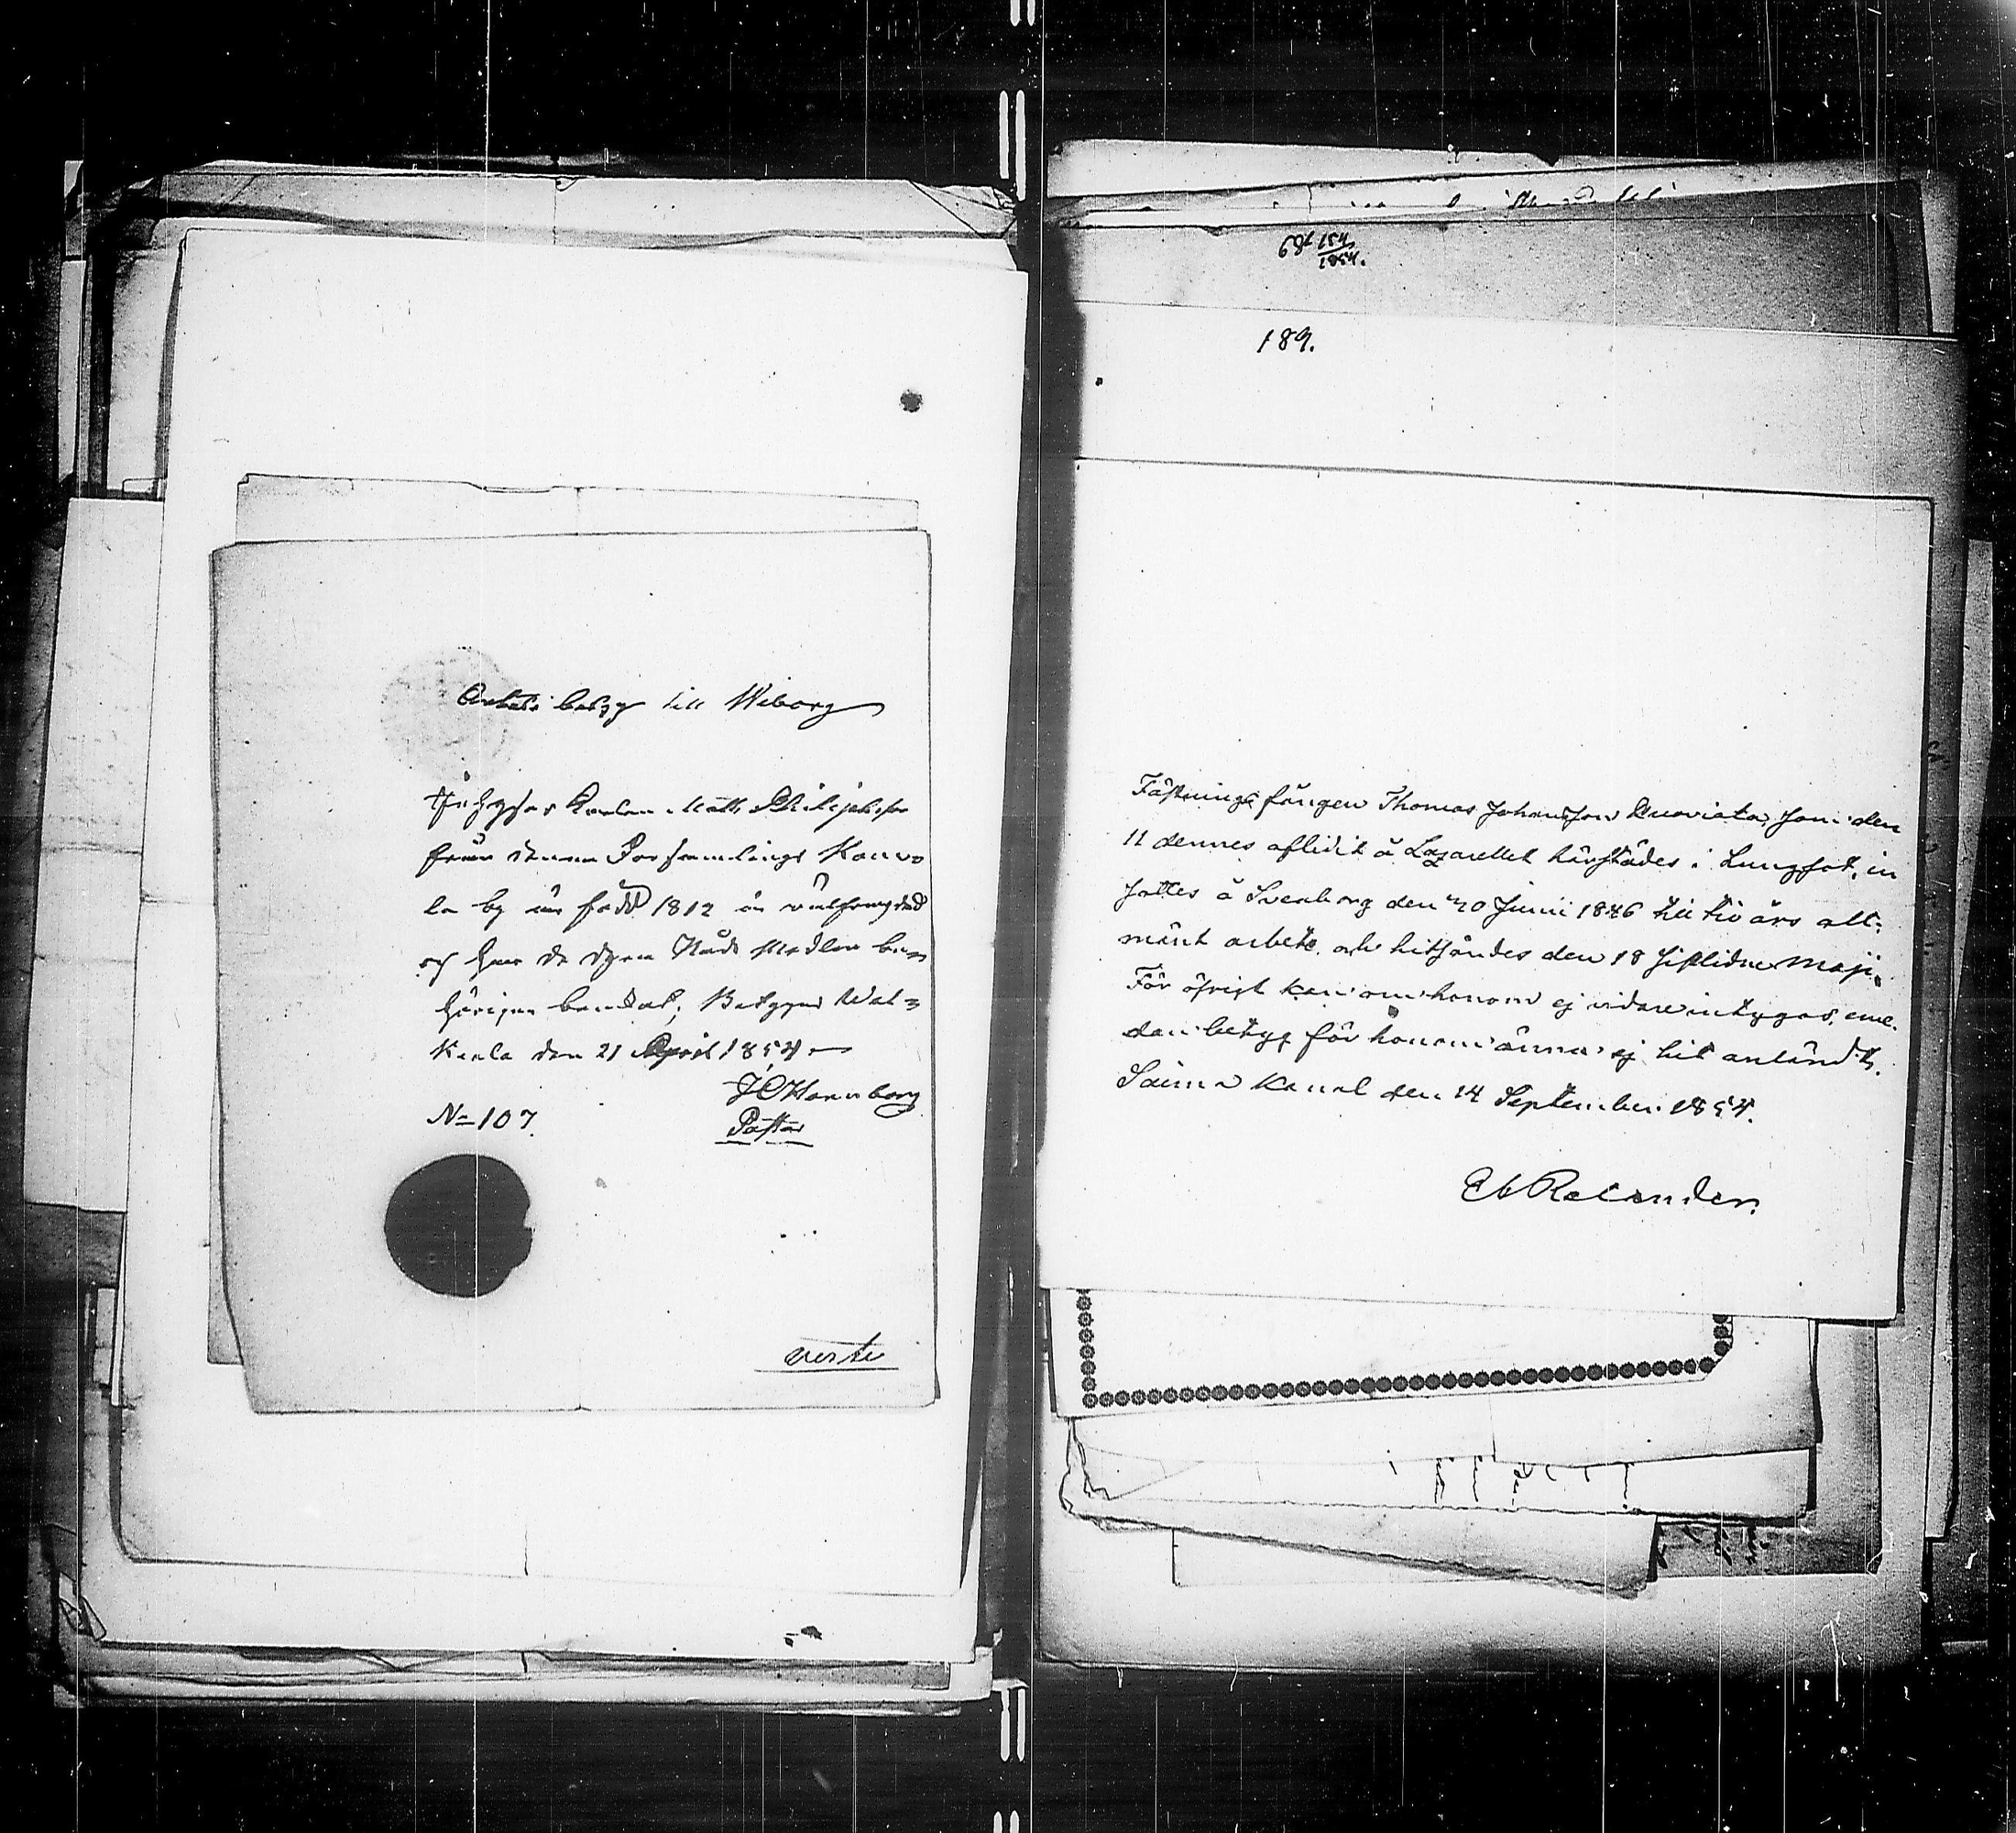 Arbets betyg till Wiborg
Inhyses Karlen Matts Philipsson
från denna Församlings Kouvo
la by är född 1812 är
och har de dyra Nåde Medlen be-
hörigen; Betygas Wal-
keala den 21 April 1854
Pastor
N=107.
verte
189 1854.
189.
Fästnings fången Thomas Johansson som den
11 dennes aflidit å Lazarettet härstädes i Lungsot, in
sattes å Sveaborg den 20 Junii 1846 till tio års all-
mänt arbete och hitsändes den 18 sistlidne Maji.
För öfrigt kan om honom ej vidare intygas, eme-
dan betyg för honom ännu ej hit anländt.
Saima Kanal den 14 September 1854.
Relander.